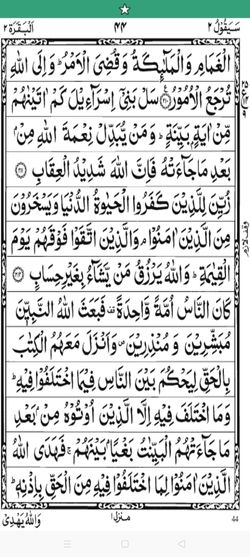 سَيَقُولُ ٢ ٤٤ اَلْبَقَرَة ٢
الْغَمَامِ وَالْمَلٰٓئِكَةُ وَقُضِیَ الْاَمْرُ ؕ وَاِلَی اللّٰهِ
تُرْجَعُ الْاُمُوْرُ ۟ سَلْ بَنِیْۤ اِسْرَآءِیْلَ كَمْ اٰتَیْنٰهُمْ
مِّنْ اٰیَةٍۭ بَیِّنَةٍ ؕ وَمَنْ یُّبَدِّلْ نِعْمَةَ اللّٰهِ مِنْۢ
بَعْدِ مَا جَآءَتْهُ فَاِنَّ اللّٰهَ شَدِیْدُ الْعِقَابِ ۟
زُیِّنَ لِلَّذِیْنَ كَفَرُوا الْحَیٰوةُ الدُّنْیَا وَیَسْخَرُوْنَ
مِنَ الَّذِیْنَ اٰمَنُوْا ۘ وَالَّذِیْنَ اتَّقَوْا فَوْقَهُمْ یَوْمَ
الْقِیٰمَةِ ؕ وَاللّٰهُ یَرْزُقُ مَنْ یَّشَآءُ بِغَیْرِ حِسَابٍ ۟
كَانَ النَّاسُ اُمَّةً وَّاحِدَةً ۫ فَبَعَثَ اللّٰهُ النَّبِیّٖنَ
مُبَشِّرِیْنَ وَمُنْذِرِیْنَ ۪ وَاَنْزَلَ مَعَهُمُ الْكِتٰبَ
بِالْحَقِّ لِیَحْكُمَ بَیْنَ النَّاسِ فِیْمَا اخْتَلَفُوْا فِیْهِ ؕ
وَمَا اخْتَلَفَ فِیْهِ اِلَّا الَّذِیْنَ اُوْتُوْهُ مِنْۢ بَعْدِ
مَا جَآءَتْهُمُ الْبَیِّنٰتُ بَغْیًۢا بَیْنَهُمْ ۚ فَهَدَی اللّٰهُ
الَّذِیْنَ اٰمَنُوْا لِمَا اخْتَلَفُوْا فِیْهِ مِنَ الْحَقِّ بِاِذْنِهٖ ؕ
44 منزل ١ وَاللّٰهُ یَهْدِیْ